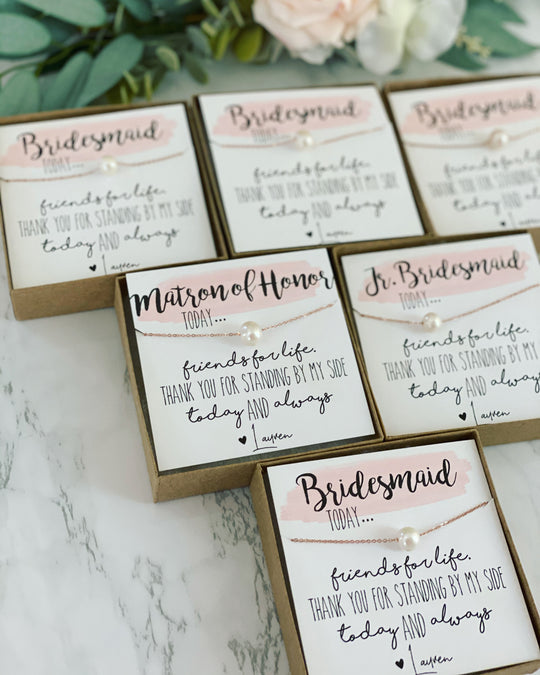 Bridesmaid
TODAY...
friends for life.
THANK YOU FOR STANDING BY MY SIDE
today AND always
♥ Lauren
Bridesmaid
TODAY...
friends for life.
THANK YOU FOR STANDING BY MY SIDE
today AND always
Lauren
Bridesmaid
TODAY...
friends for life.
THANK YOU FOR STANDING BY MY SIDE
today AND always
♥ Lauren
Matron of Honor
TODAY...
friends for life.
THANK YOU FOR STANDING BY MY SIDE
today AND always
♥ Lauren
Jr. Bridesmaid
TODAY...
friends for life.
THANK YOU FOR STANDING BY MY SIDE
today AND always
♥ Lauren
Bridesmaid
TODAY...
friends for life.
THANK YOU FOR STANDING BY MY SIDE
today AND always
♥ Lauren